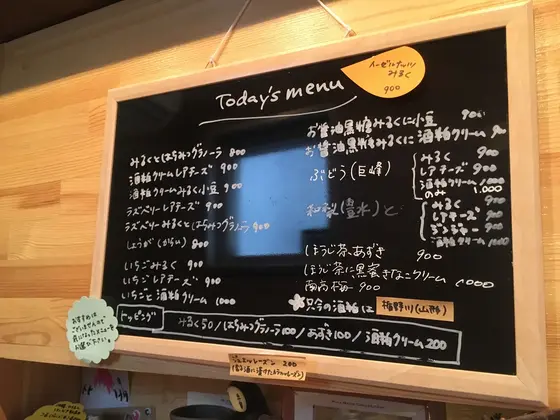 Today's menu
ヘーゼルナッツ
みるく
900
みるくとはちみつグラノーラ 800
酒粕クリームレアチーズ 900
酒粕クリームみるく小豆 900
ラズベリーレアチーズ 900
ラズベリーみるくとはちみつグラノーラ 900
しょうが(からい) 800
いちごみるく 900
いちごレアチーズ 900
いちごと酒粕クリーム 1000
お醤油黒糖みるくに小豆 900
お醤油黒糖みるくに酒粕クリーム 900
ぶどう(巨峰)
みるく 900
レアチーズ 900
酒粕クリーム 1000
のみ 1,000
和梨(豊水)と
みるく 900
レアチーズ 900
ジンジャー 900
酒粕クリーム 1000
ほうじ茶、あずき 900
ほうじ茶に黒蜜きなこクリーム 1000
南高梅 900
只今の酒粕は 楯野川(山形)
トッピング
みるく50/はちみつグラノーラ100/あずき100/酒粕クリーム200
おすすめは
ございませんので
気になったメニューを
お選び下さい。
200